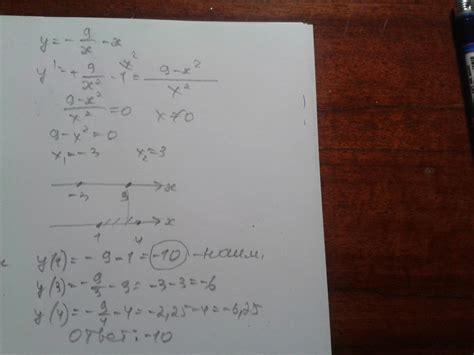 y = -9/x - x
y' = + 9/x² - 1 = (9-x²)/x²
(9-x²)/x² = 0 x≠0
9-x²=0
x₁=-3 x₂=3
-3 3 x
1 4 x
y(1) = -9-1 = -10 -наим.
y(3) = -9/3 - 3 = -3-3 = -6
y(4) = -9/4 - 4 = -2,25-4 = -6,25
Ответ: -10